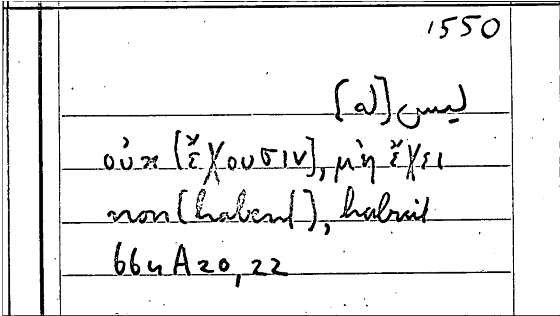 1550
ليس [له]
οὐκ [ἔχουσιν], μὴ ἔχει
non [habent], habuit
664 A 20, 22